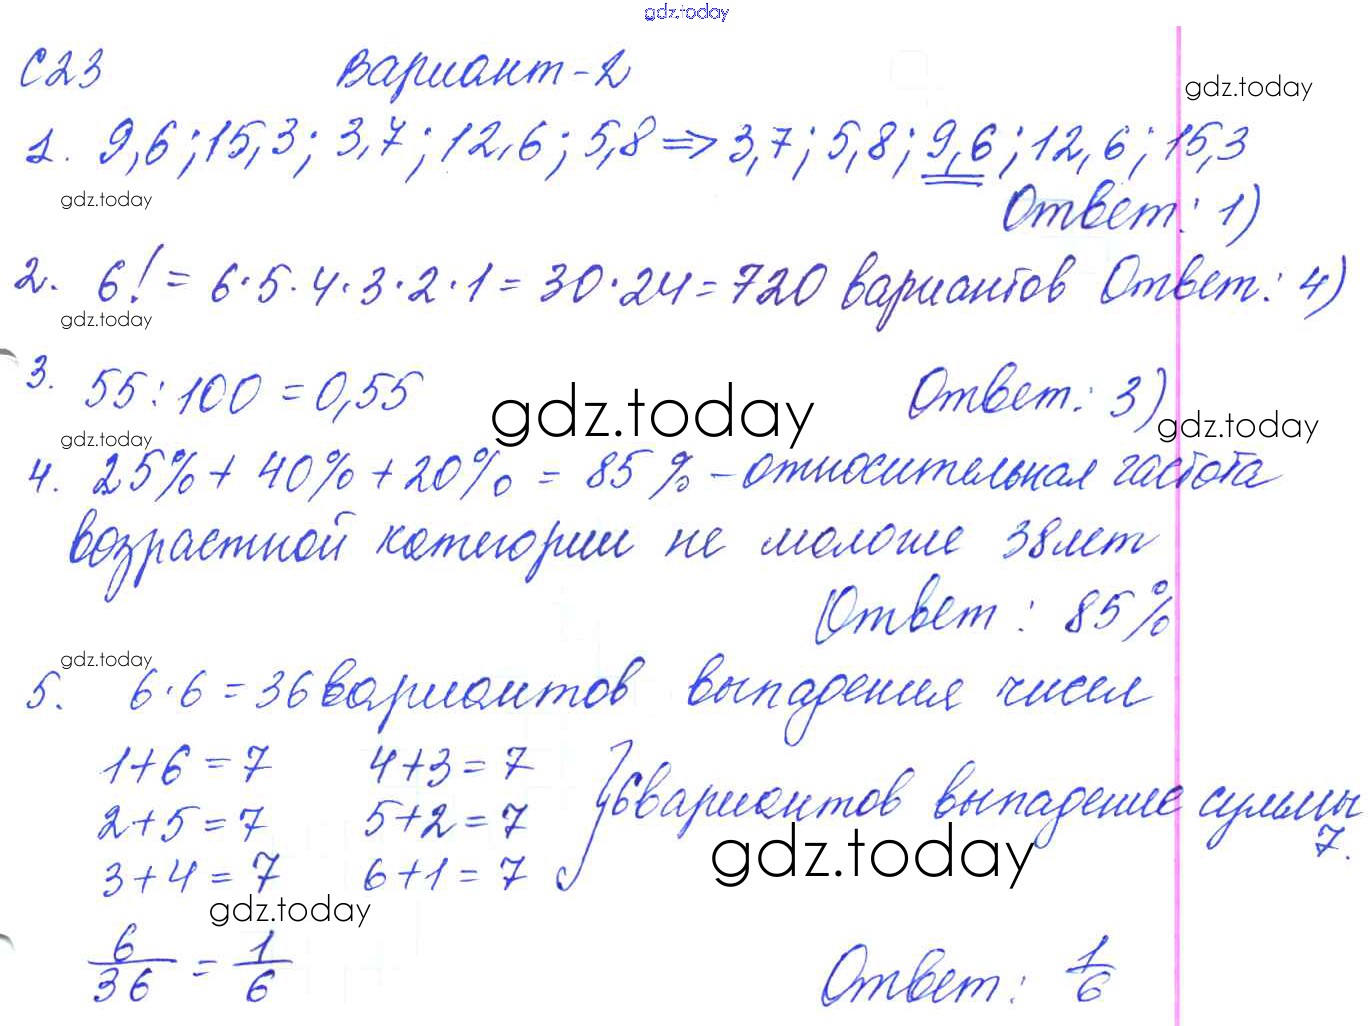 gdz.today
С23 Вариант-2
gdz.today
1. 9,6; 15,3; 3,7; 12,6; 5,8 => 3,7; 5,8; 9,6; 12,6; 15,3
gdz.today
Ответ: 1)
2. 6! = 6·5·4·3·2·1 = 30·24 = 720 вариантов Ответ: 4)
gdz.today
3. 55:100 = 0,55 Ответ: 3)
gdz.today
gdz.today
gdz.today
4. 25% + 40% + 20% = 85% - относительная частота
возрастной категории не моложе 38 лет
Ответ: 85%
gdz.today
5. 6·6 = 36 вариантов выпадения чисел
1+6=7 4+3=7
2+5=7 5+2=7 } 6 вариантов выпадение суммы 7.
3+4=7 6+1=7
gdz.today
gdz.today
6/36 = 1/6 Ответ: 1/6